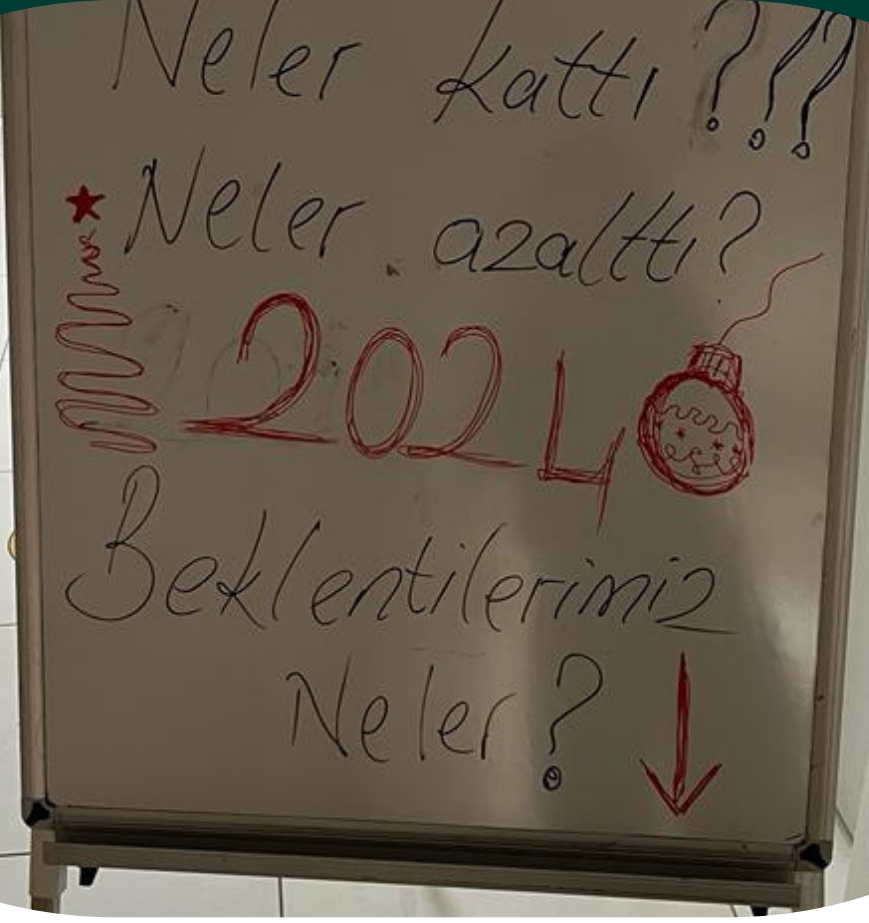 Neler kattı???
Neler azalttı?
2024
Beklentilerimiz
Neler?